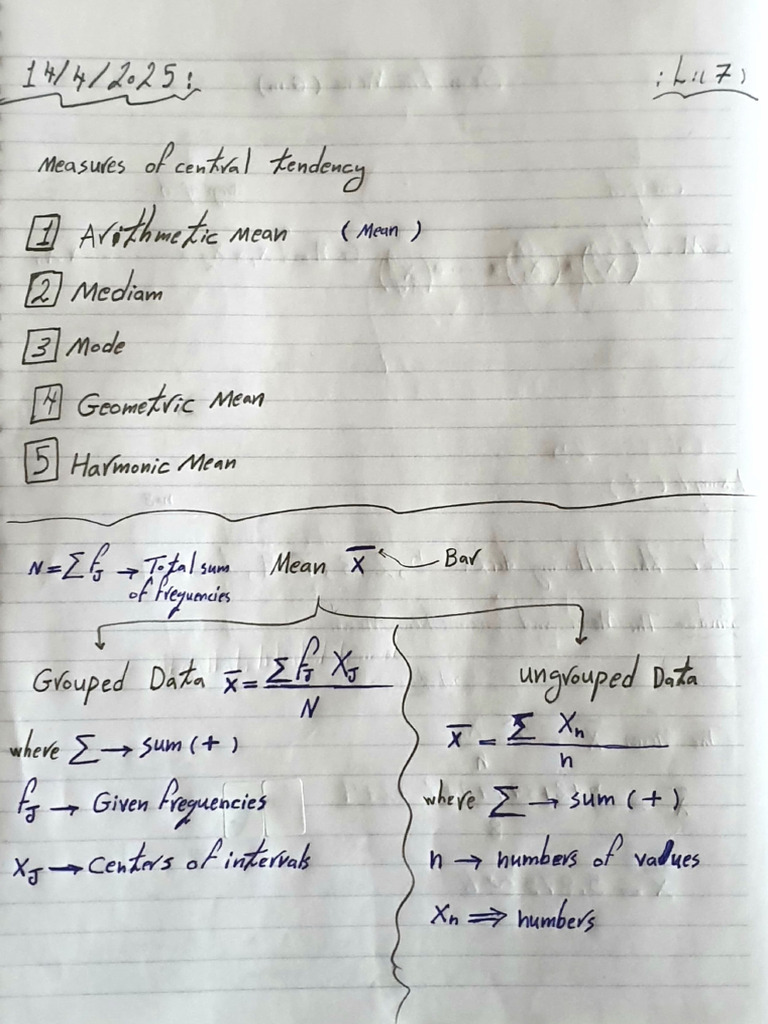 14/4/2025:
:L:(7)
Measures of central tendency
1 Arithmetic Mean (Mean)
2 Mediam
3 Mode
4 Geometric Mean
5 Harmonic Mean
N = Σ fJ → Total sum of frequencies
Mean x̄ Bar
Grouped Data x̄ = Σ fJ XJ / N
where Σ → sum (+)
fJ → Given frequencies
XJ → Centers of intervals
ungrouped Data
x̄ = Σ Xn / n
where Σ → sum (+)
n → numbers of values
Xn ⇒ numbers